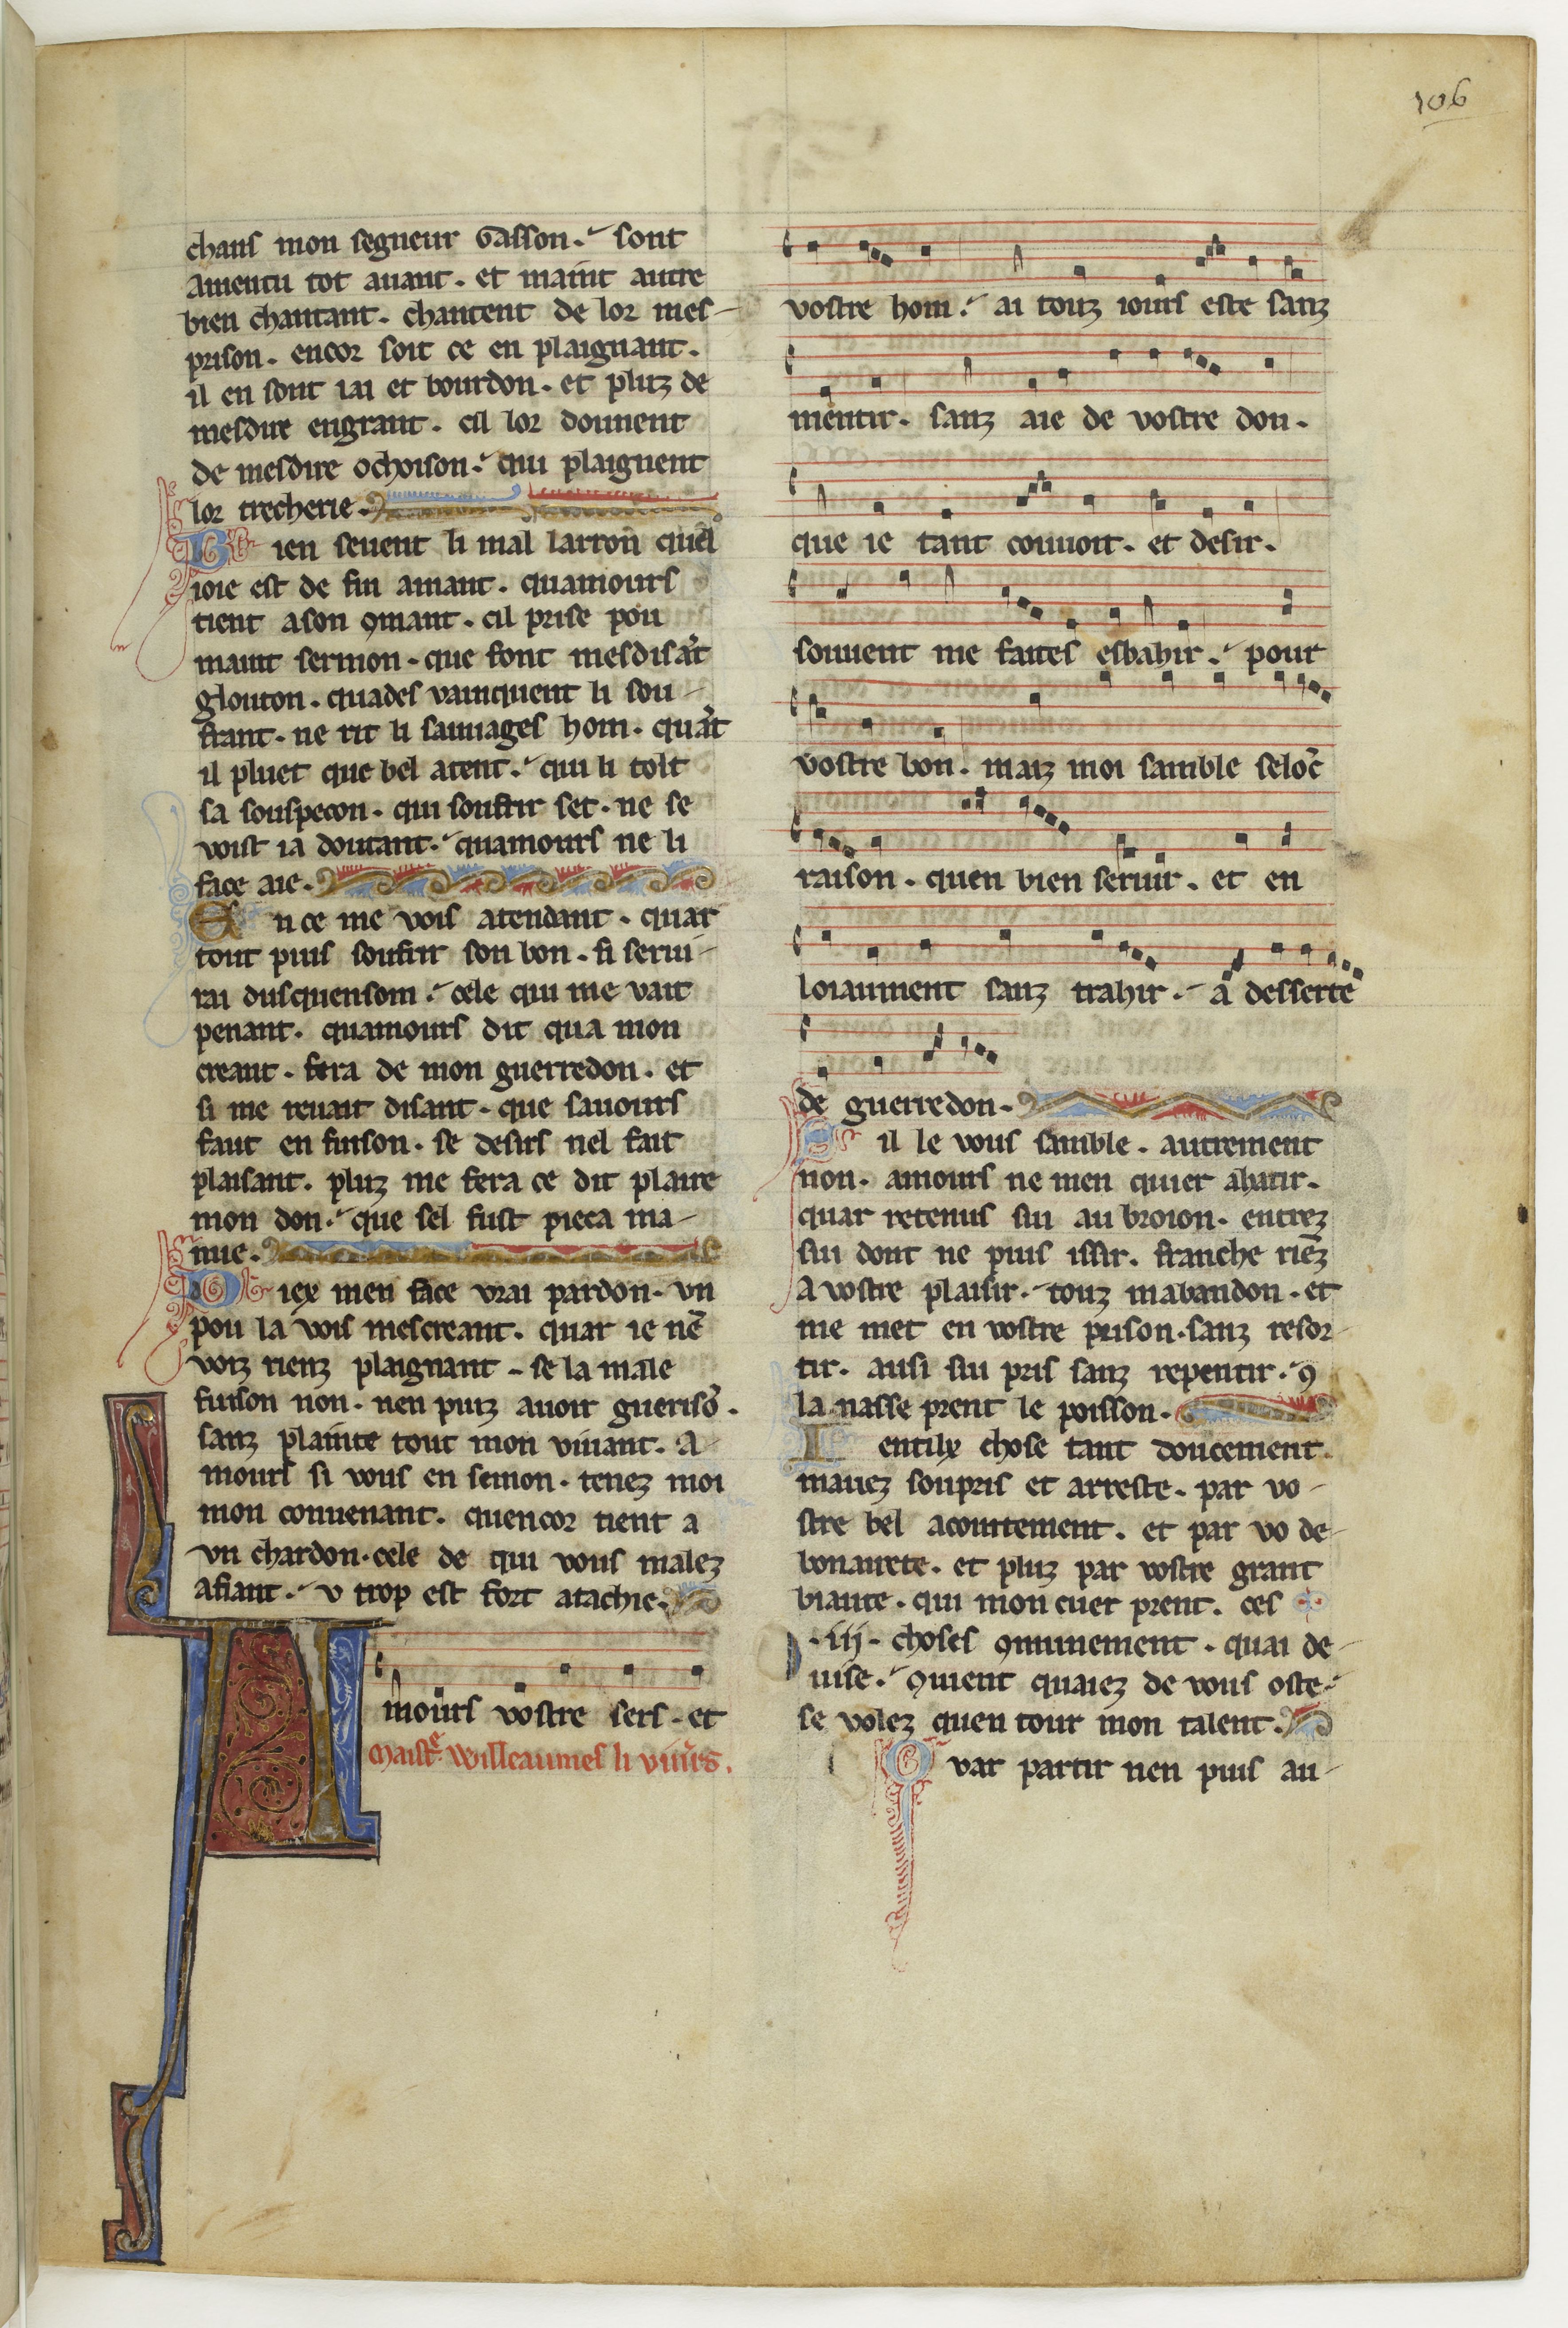 106
chans mon segneur Gasson. sont
amentu tot auant. et maint autre
bien chantant. chantent de lor mes-
prison. encor soit ce en plaignant.
il en sont iai et bourdon. et pluz de
mesdire engrant. cil lor donnent
de mesdire ochoison. qui plaignent
lor trecherie.
Bien seuent li mal larron quel
ioie est de fin amant. quamours
tient a son ꝯmant. cil prise pou
maint sermon. que font mesdisāt
glouton. quades vainquent li sou-
frant. ne rit li sauuages hom. quāt
il pluet que bel atent. qui li tolt
sa souspecon. qui soufrir set. ne se
voist ia doutant. quamours ne li
face aie.
En ce me vois atendant. quar
tout puis soufrir son bon. si serui-
rai dusquensom. cele qui me vait
penant. quamours dit qua mon
creant. fera de mon guerredon. et
si me reuait disant. que sauours
faut en fuison. se desirs nel fait
plaisant. pluz me fera ce dit plaire
mon don. que sel fust pieca ma-
nue.
Diex men face vrai pardon. vn
pou la vois mescreant. quar ie nē
voiz rienz plaignant. se la male
fuison non. nen puiz auoir guerisō.
sanz plainte tout mon viuant. A-
mours si vous en semon. tenez moi
mon conuenant. quencor tient a
vn chardon. cele de qui vous malez
afiant. v trop est fort atachie.
Amours vostre sers. et
Maistꝛe Willeaumes li viniꝛs.
vostre hom. ai touz iours este sanz
mentir. sanz aie de vostre don.
que ie tant conuoit. et desir.
souuent me faites esbahir. pour
vostre bon. maiz moi samble selōc
raison. quen bien seruir. et en
loiaument sanz trahir. a desserte
de guerredon.
Sil le vous samble. autrement
non. amours ne men quier ahatir.
quar retenus sui au broion. entrez
sui dont ne puis issir. franche riēz
a vostre plaisir. touz mabandon. et
me met en vostre prison. sanz resor-
tir. ausi sui pris sanz repentir. ꝯ
la nasse prent le poisson.
Ientilx chose tant doucement
mauez soupris et arreste. par vo-
stre bel acointement. et par vo de-
bonairete. et pluz par vostre grant
biaute. qui mon cuer prent. ces
.iij. choses ꝯmunement. quai de-
uise. ꝯuient quaiez de vous oste.
se volez quen tour mon talent.
Quar partir nen puis au-